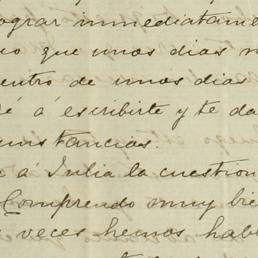 ograr inmediatame
o que unos dias m
entro de unos dias
é á escribirte y te da
unstancias.
e á Julia la cuestion
Comprendo muy bie
s veces hemos hab